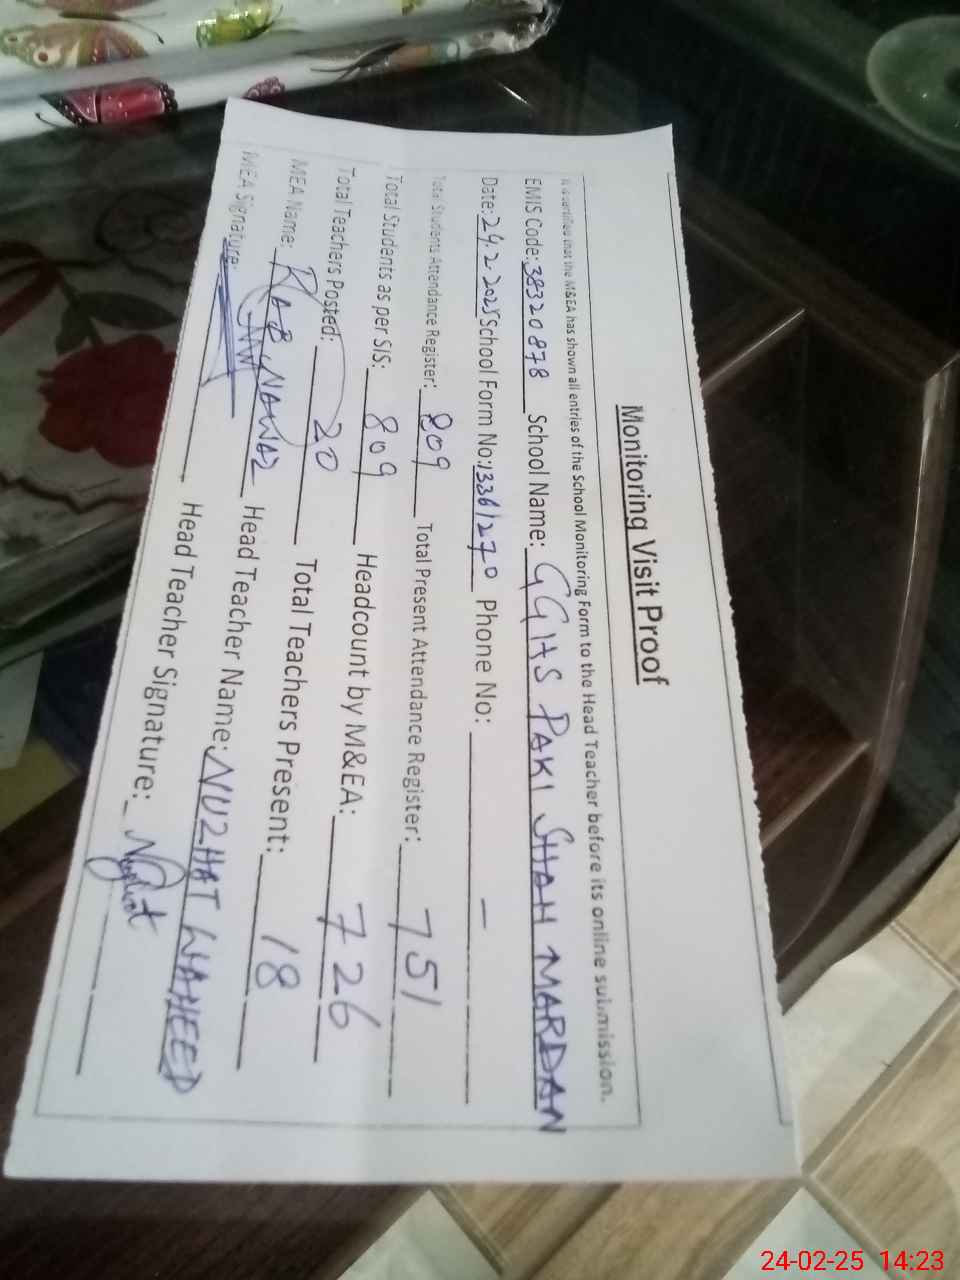 Monitoring Visit Proof
It is certified that the M&EA has shown all entries of the School Monitoring Form to the Head Teacher before its online submission.
EMIS Code: 38320878 School Name: GGHS PAKI SHAH MARDAN
Date: 24.2.2025 School Form No: 13361270 Phone No: —
Total Students Attendance Register: 809 Total Present Attendance Register: 751
Total Students as per SIS: 809 Headcount by M&EA: 726
Total Teachers Posted: 20 Total Teachers Present: 18
MEA Name: RAB NAWAZ Head Teacher Name: NUZHAT WAHEED
MEA Signature: Head Teacher Signature: Nuzhat
24-02-25 14:23